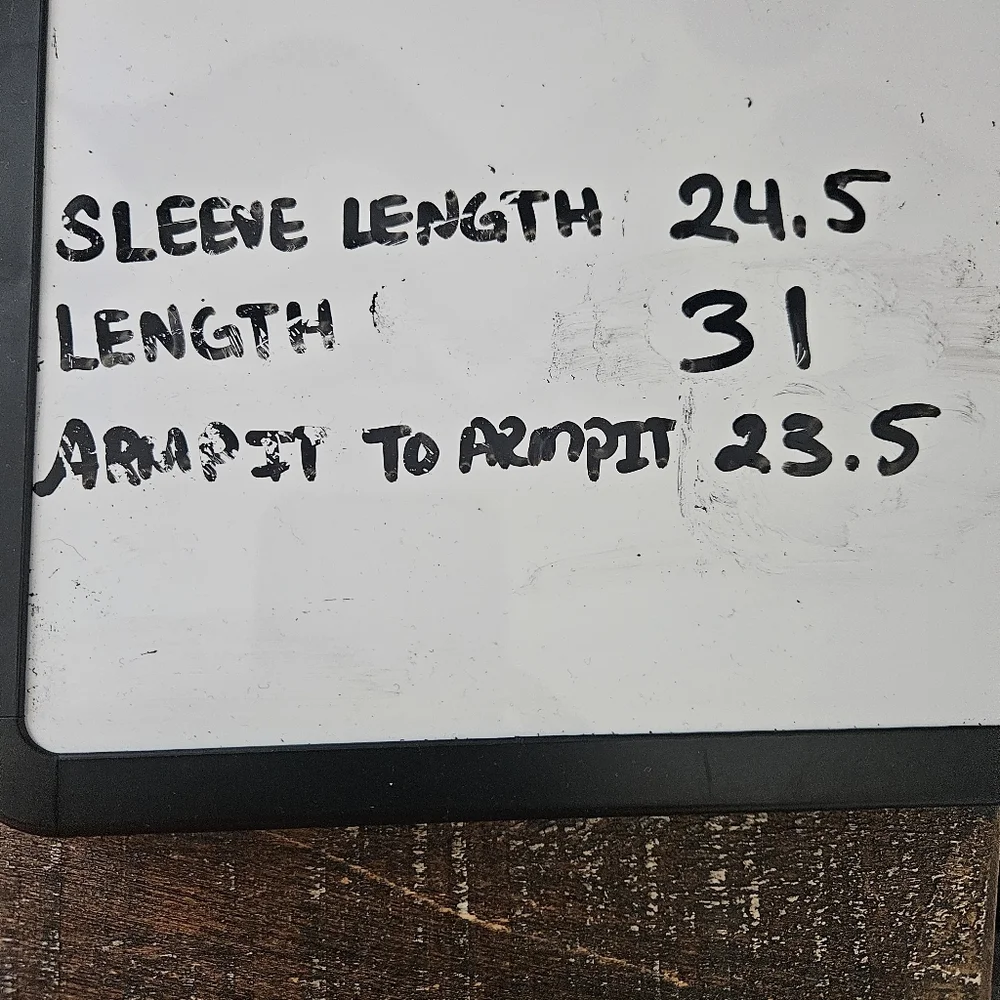 SLEEVE LENGTH 24.5
LENGTH 31
ARMPIT TO ARMPIT 23.5